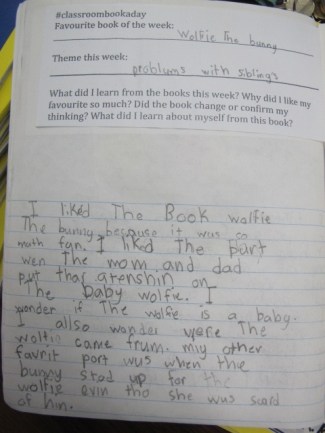 #classroombookaday
Favourite book of the week:
Wolfie The bunny
Theme this week:
problums with siblings
What did I learn from the books this week? Why did I like my
favourite so much? Did the book change or confirm my
thinking? What did I learn about myself from this book?
I liked The Book wolfie
The bunny because it wus so
muth fun. I liked The part
wen The mom and dad
put thar atenshin on
The baby wolfie. I
wonder if The wolfe is a baby.
I allso wonder were The
wolfie came frum. miy other
favrit part wus when the
bunny stod up for the
wolfie evin tho she wus scard
of him.